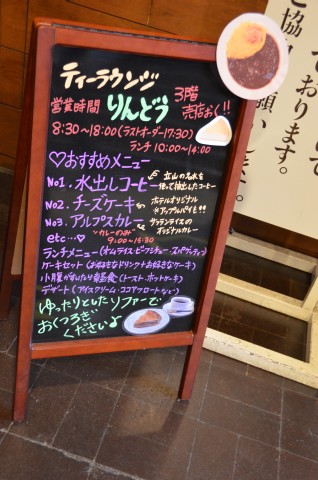 ティーラウンジ
営業時間 りんどう 3階 売店おく!!
8:30~18:00(ラストオーダー17:30)
ランチ 10:00~14:00
♡おすすめメニュー
No1. 水出しコーヒー 立山の名水を使って抽出したコーヒー
No2. チーズケーキ ホテルオリジナル ※アップルパイも!!
No3. アルプスカレー サフランライスのオリジナルカレー
etc… "カレーのみ" 9:00~15:30
ランチメニュー(オムライス・ビーフシチュー・スパゲッティ)
ケーキセット(お好きなドリンク+お好きなケーキ)
小腹が空いたら軽食(トースト・ホットケーキ)
デザート(アイスクリーム・ココアフロートなど)
ゆったりとしたソファーで
おくつろぎ
くださいよ
ております。